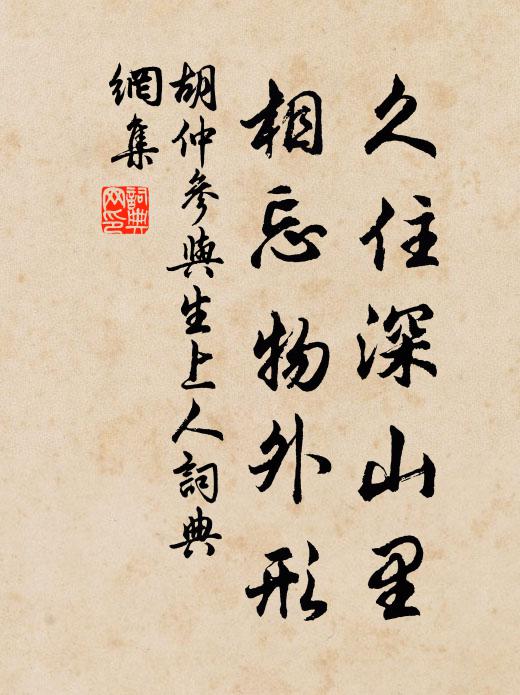 久住深山里
相忘物外形
胡仲參與生上人詞典
網集
詞典
网印